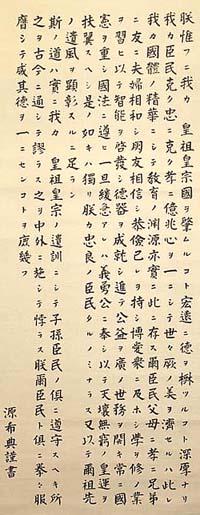 朕惟フニ我カ　皇祖皇宗國ヲ肇ムルコト宏遠ニ德ヲ樹ツルコト深厚ナリ
我カ臣民克ク忠ニ克ク孝ニ億兆心ヲ一ニシテ世々厥ノ美ヲ濟セルハ此レ
我カ國體ノ精華ニシテ教育ノ淵源亦實ニ此ニ存ス爾臣民父母ニ孝ニ兄弟
ニ友ニ夫婦相和シ朋友相信シ恭儉己レヲ持シ博愛衆ニ及ホシ學ヲ修メ業
ヲ習ヒ以テ智能ヲ啓發シ德器ヲ成就シ進テ公益ヲ廣メ世務ヲ開キ常ニ國
憲ヲ重シ國法ニ遵ヒ一旦緩急アレハ義勇公ニ奉シ以テ天壤無窮ノ皇運ヲ
扶翼スヘシ是ノ如キハ獨リ朕カ忠良ノ臣民タルノミナラス又以テ爾祖先
ノ遺風ヲ顯彰スルニ足ラン
斯ノ道ハ實ニ我カ　皇祖皇宗ノ遺訓ニシテ子孫臣民ノ俱ニ遵守スヘキ所
之ヲ古今ニ通シテ謬ラス之ヲ中外ニ施シテ悖ラス朕爾臣民ト俱ニ拳々服
膺シテ咸其德ヲ一ニセンコトヲ庶幾フ
源布典謹書